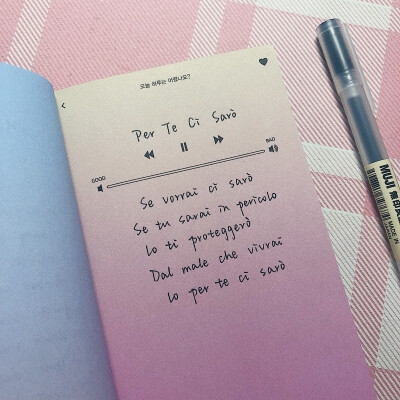 오늘 하루는 어땠나요?
Per Te Ci Sarò
GOOD BAD
Se vorrai ci sarò
Se tu sarai in pericolo
Io ti proteggerò
Dal male che vivrai
Io per te ci sarò
MUJI 無印良品
MADE IN